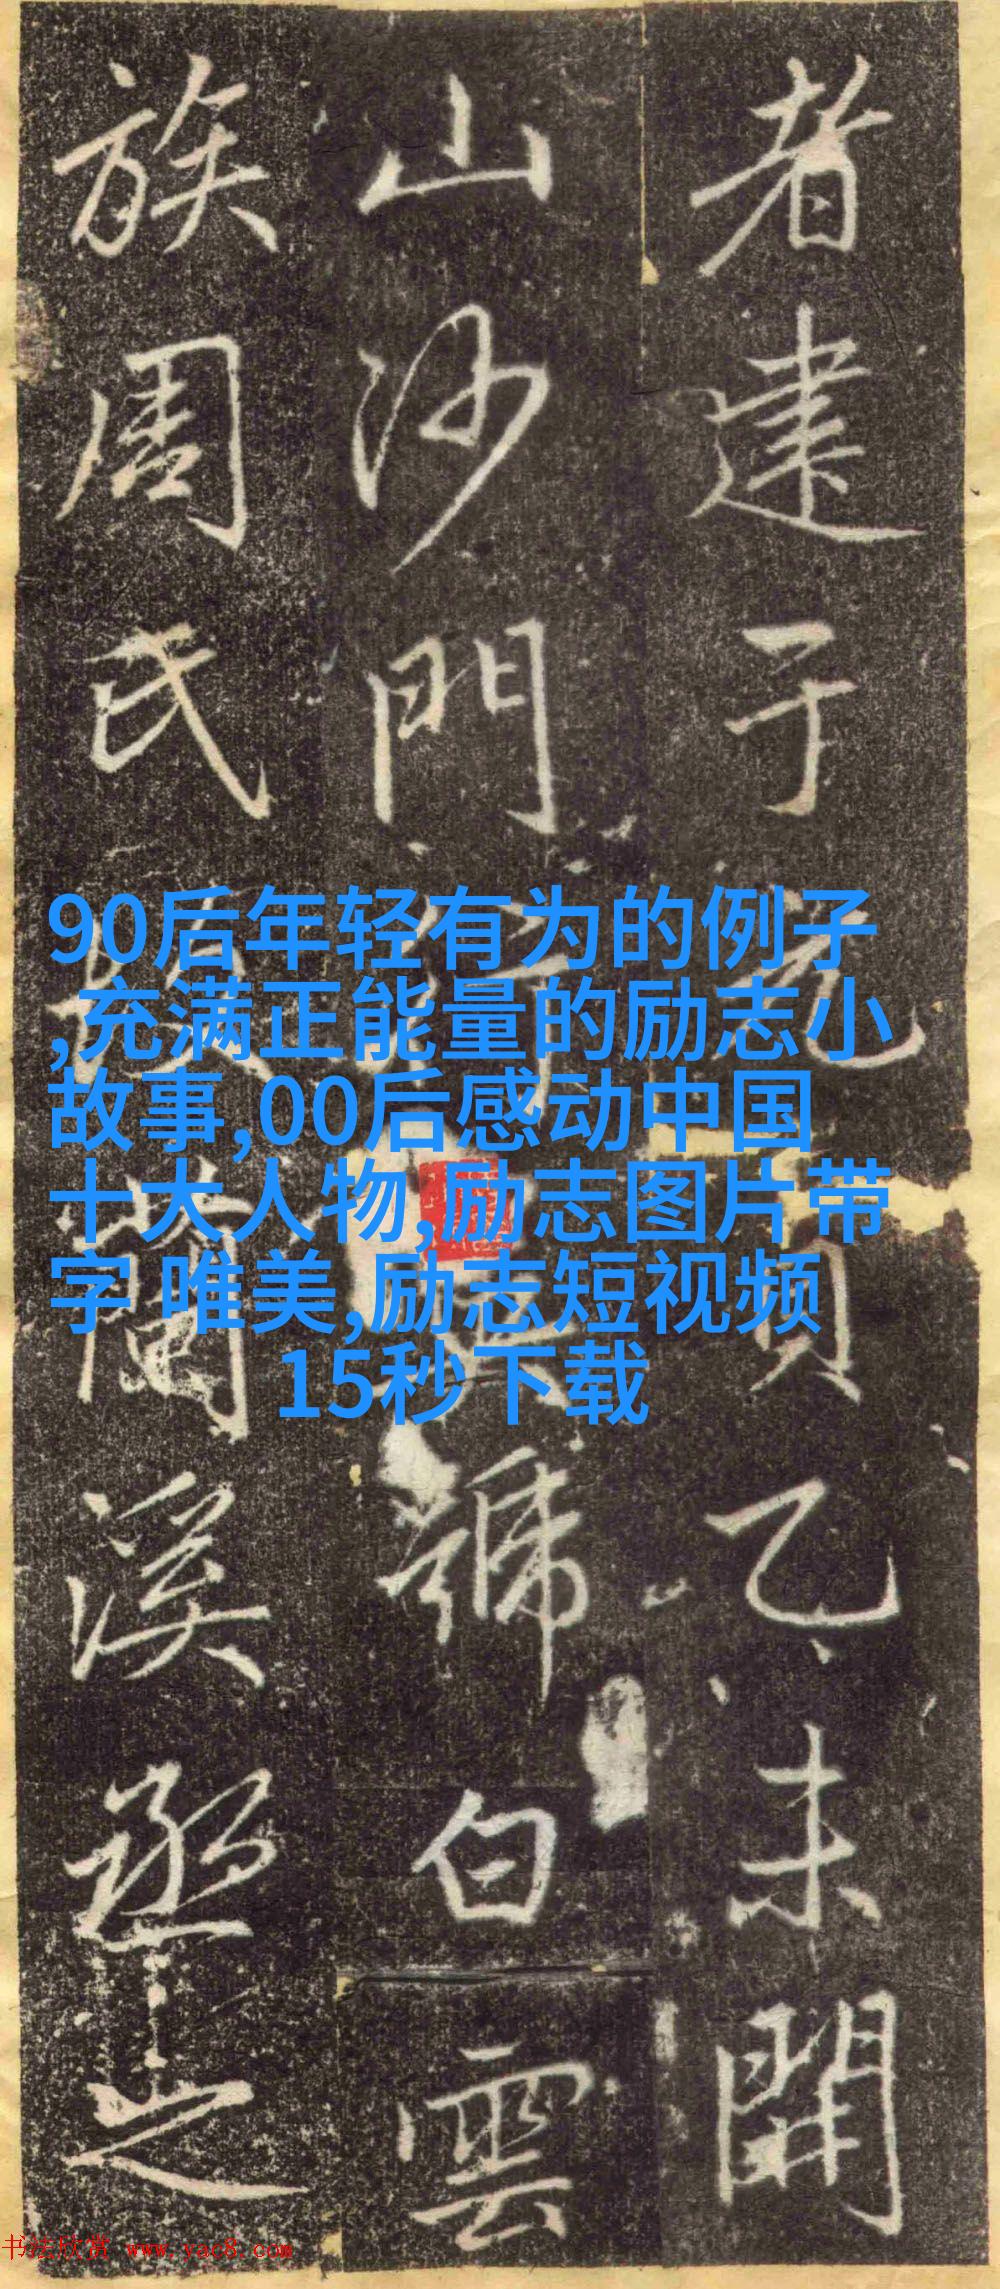 者建于元貞乙未開
山沙門號白雲
族周氏蘭溪丞之
90后年轻有为的例子
,充满正能量的励志小
故事,00后感动中国
十大人物,励志图片带
字 唯美,励志短视频
15秒下载
书法欣赏 www.yac8.com